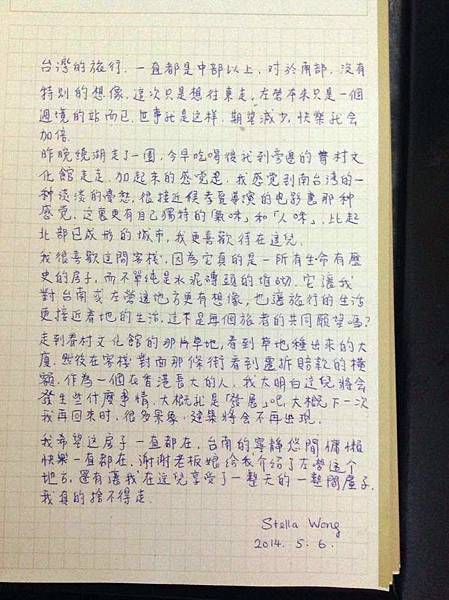 台灣的旅行，一直都是中部以上，對於南部，沒有
特別的想像，這次只是想往東走，左營本來只是一個
過境的站而已，世事就是这样，期望減少，快樂就會
加倍。
昨晚繞湖走了一圈，今早吃喝後就到旁邊的眷村文
化館走走，加起來的感覚是，我感觉到南台湾的一
种淡淡的憂愁，很接近侯孝賢導演的电影裏那种
感觉，这裏更有自己獨特的「氣味」和「人味」，比起
北部已成形的城市，我更喜歡待在這兒。
我很喜歡这間客棧，因為它真的是一所有生命有歷
史的房子，而不單純是水泥磚頭的堆砌，它讓我
對台南或左營這地方更有想像，也讓旅行的生活
更接近看地的生活，这不是每個旅者的共同願望嗎？
走到眷村文化館的那片草地，看到草地種出來的大
廈，然後在客棧對面那條街看到遷拆賠款的橫
額，作為一個在香港長大的人，我太明白这兒將會
發生些什麼事情，大概就是「發展」吧，大概下一次
我再回來时，很多景象，建築將会不再出現。
我希望这房子一直都在，台南的寧靜悠閒慵懶
快樂一直都在，謝謝老板娘给我介绍了左營這个
地方，還有讓我在這兒享受了一整天的一整間屋子，
我真的捨不得走。
Stella Wong
2014. 5. 6.